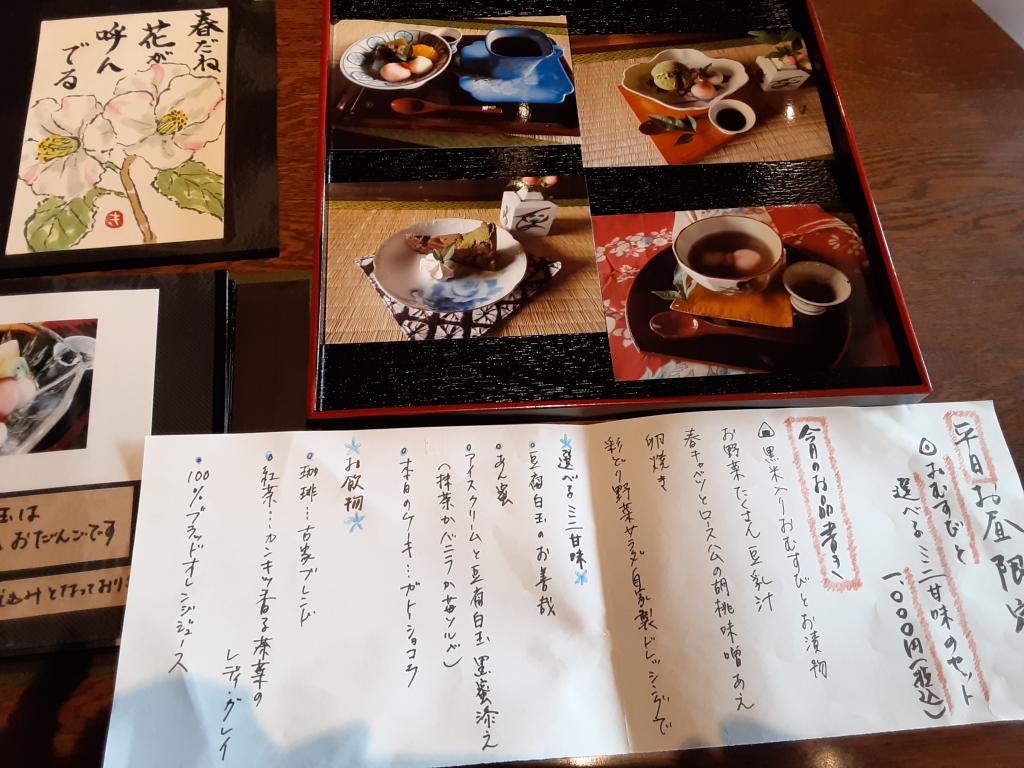 春だね
花が
呼ん
でる
き
玉は
おだんごです
となっており
平日お昼限定
おむすびと
選べるミニ甘味のセット
1000円(税込)
今月のお品書き
黒米入りおむすびとお漬物
お野菜たくさん豆乳汁
春キャベツとロースハムの胡桃味噌あえ
卵焼き
彩どり野菜サラダ自家製ドレッシングで
*選べるミニ甘味*
・豆腐白玉のお善哉
・あん蜜
・アイスクリームと豆腐白玉 黒蜜添え
(抹茶かバニラか苺ソルベ)
・本日のケーキ…ガトーショコラ
*お飲物*
・珈琲…古家ブレンド
・紅茶…カンキツ香る茶葉の
レディ・グレイ
・100%ブラッドオレンジジュース